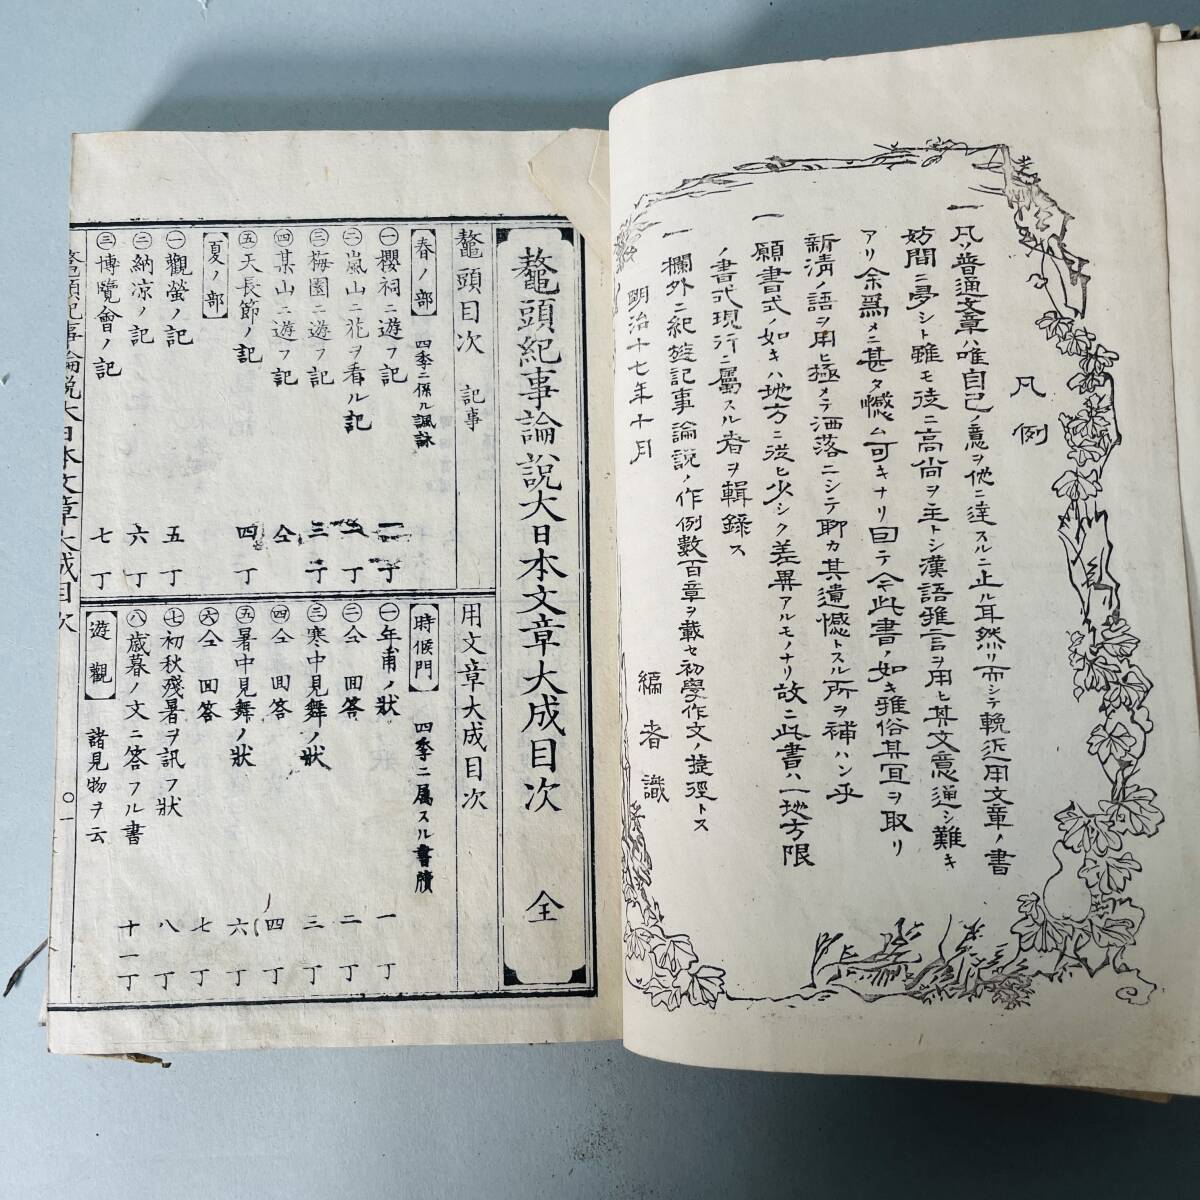 凡例
一凡ソ普通文章ハ唯自己ノ意ヲ他ニ達スルニ止ル耳然リ而シテ輓近用文章ノ書
妨間ニ夥シト雖モ徒ニ高尚ヲ主トシ漢語雅言ヲ用ヒ其文意通シ難キ
アリ余為メニ甚タ憾ム可キナリ因テ今此書ノ如キ雅俗其宜ヲ取リ
新清ノ語ヲ用ヒ極メテ洒落ニシテ聊カ其遺憾トスル所ヲ補ハン乎
一願書式ノ如キハ地方ニ従ヒ少シク差異アルモノナリ故ニ此書ハ一地方限
ノ書式現行ニ屬スル者ヲ輯録ス
一欄外ニ紀遊記事論説ノ作例數百章ヲ載セ初學作文ノ捷徑トス
明治十七年十月
編者識
鼇頭紀事論説大日本文章大成目次 全
鼇頭目次 記事
春ノ部 四季ニ係ル諷詠
一 櫻祠ニ遊フ記 一丁
二 嵐山ニ花ヲ看ル記 二丁
三 梅園ニ遊フ記 三丁
四 某山ニ遊フ記 仝
五 天長節ノ記 四丁
夏ノ部
一 觀螢ノ記 五丁
二 納凉ノ記 六丁
三 博覽會ノ記 七丁
用文章大成目次
時候門 四季ニ属スル書牘
一 年甫ノ状 一丁
二 仝 回答 二丁
三 寒中見舞ノ状 三丁
四 仝 回答 四丁
五 暑中見舞ノ状 六丁
六 仝 回答 七丁
七 初秋殘暑ヲ訊フ状 八丁
八 歳暮ノ文ニ答フル書 十一丁
遊觀 諸見物ヲ云
鼇頭紀事論説大日本文章大成目次
〇一